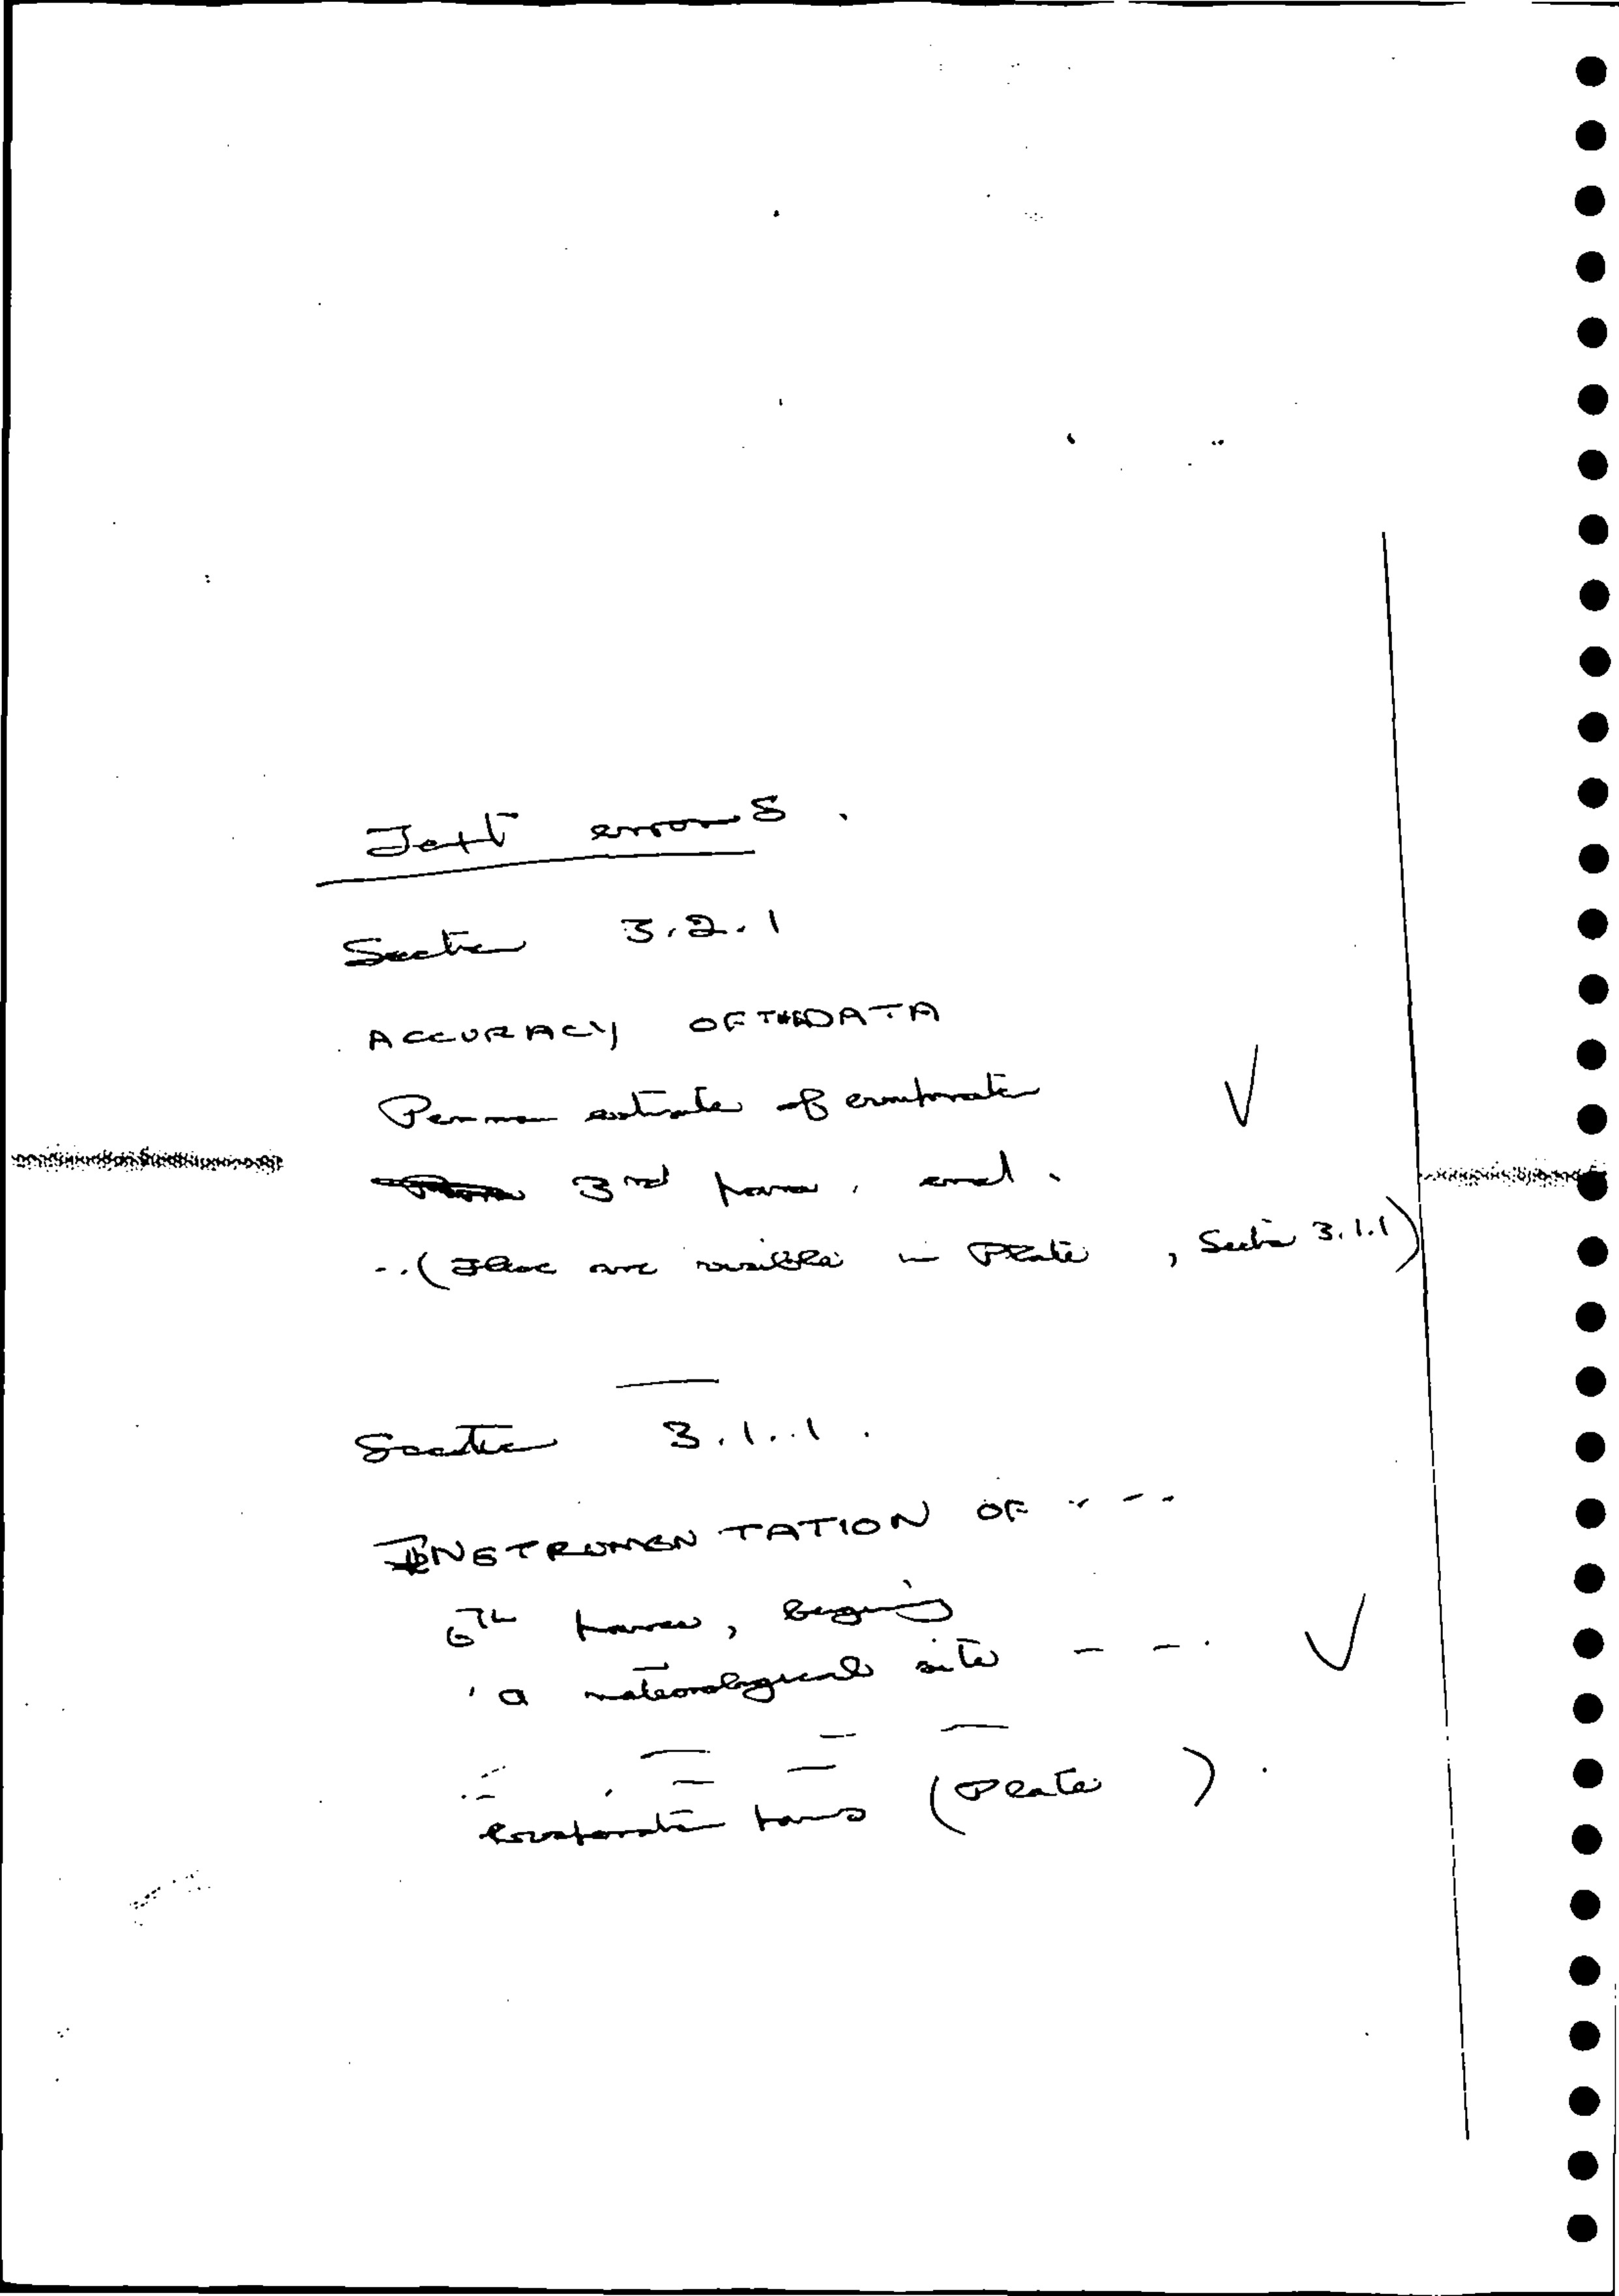 Text errors.
Section 3.2.1
ACCURACY OF THE DATA
Penman estimate of evaporation
3rd para, end.
..(These are visible in Plate , Section 3.1.1)
Section 3.1.1.
INSTRUMENTATION OF ----
6th para, beginning
'a meteorological site - - .
evaporation pans (Plate ).